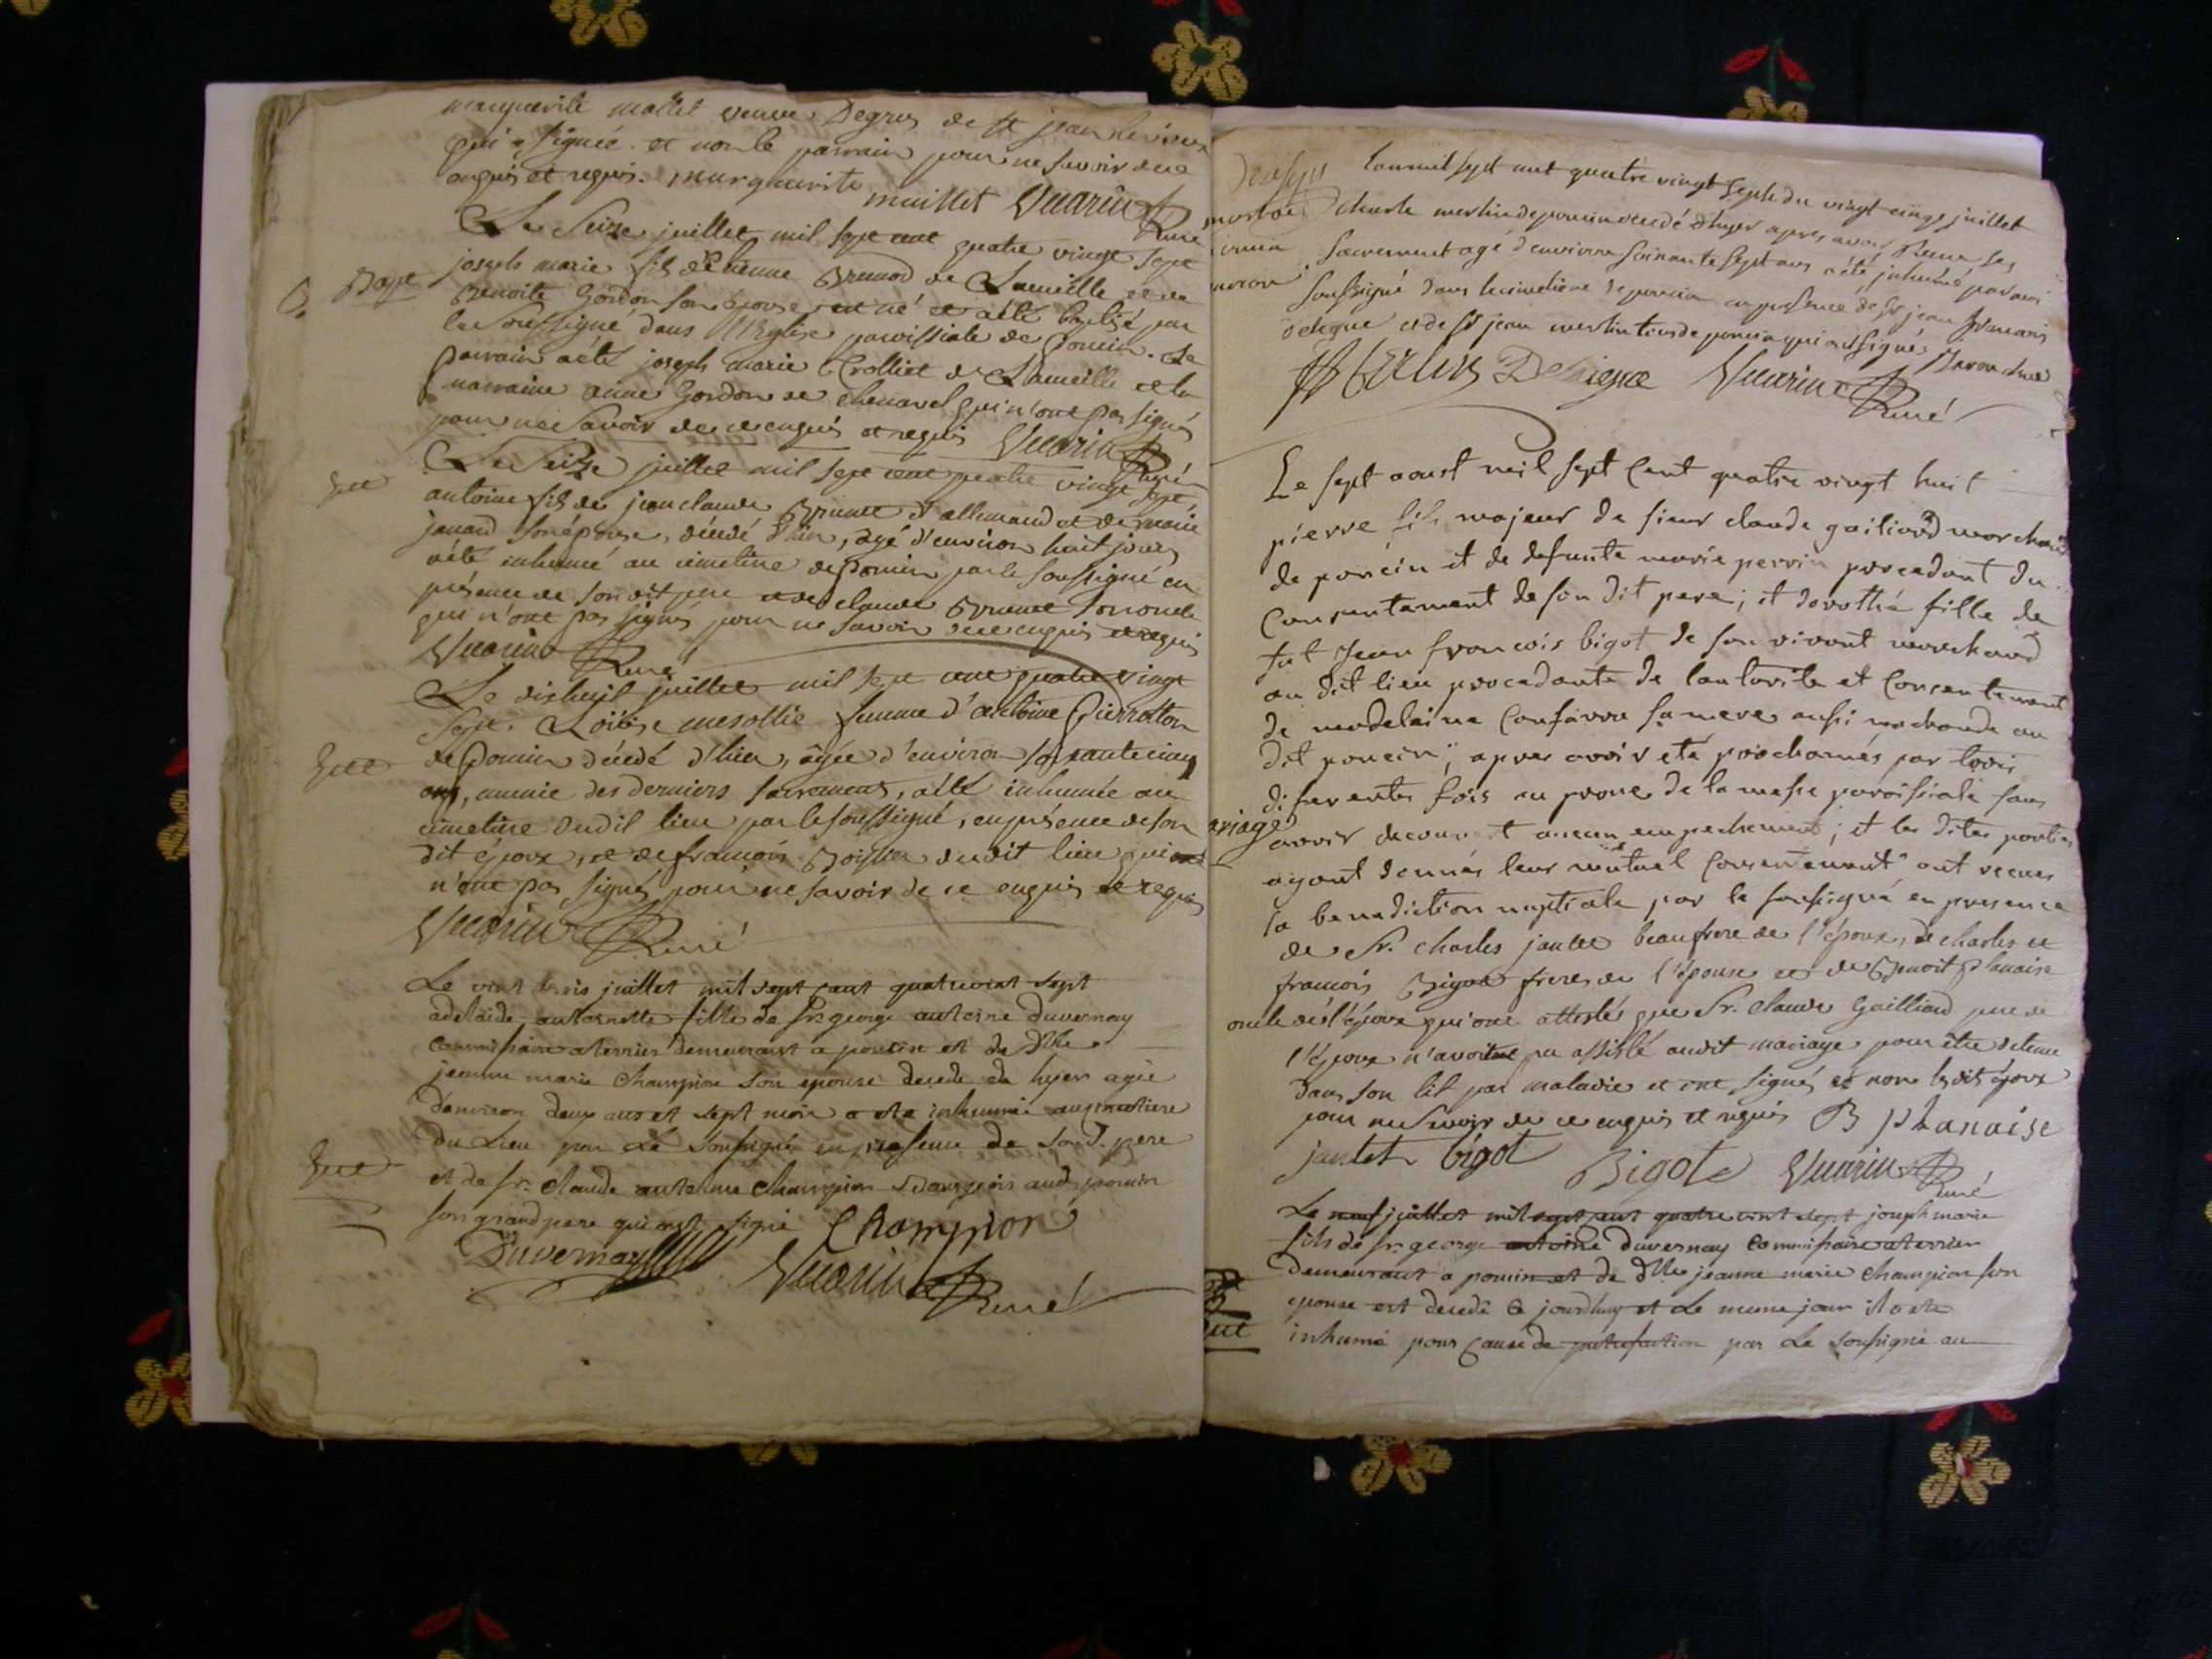 marguerite mallet veuve Degrus de st jean le vieux
qui a signée. et non le parrain pour ne savoir de ce
enquis et requis. marguerite maillet Vuarin Curé
Le Seize juillet mil sept cent quatre vingt sept
Bapt joseph marie fils d'etienne Brunod de Lameille et de
Benoite Gordon son épouse, est né et a été baptisé par
le soussigné dans l'Eglise paroissiale de Poncin. Le
parrain a été joseph marie Crolliet de Lameille et la
marraine anne Gordon de chenavel qui n'ont pas signés
pour ne Savoir de ce enquis et requis Vuarin Curé
Le Seize juillet mil sept cent quatre vingt sept
antoine fils de jean claude Brunet d'allemand et de marie
janand son épouse, décédé d'hier, agé d'environ huit jours
a été inhumé au cimetière de Poncin par le soussigné en
présence de son dit pere et de claude Brunet son oncle
qui n'ont pas signés pour ne savoir de ce enquis et requis
Vuarin Curé
Le dixhuit juillet mil sept cent quatre vingt
sept. Loüise mesollie femme d'antoine Pierratton
de Poncin décédé d'hier, agée d'environ soixante cinq
ans, munie des derniers sacrements, a été inhumée au
cimetière dudit lieu par le soussigné, en présence de son
dit époux, et de françois dudit lieu qui
n'ont pas signés pour ne savoir de ce enquis et requis
Vuarin Curé
Le vint trois juillet mil sept cent quatrevint sept
adelaide antoinette fille de sr. george antoine duvernay
commissaire a terrier demeurant a poncin et de dlle
jeanne marie Champion son epouse decede de hyer agee
d'environ deux ans et sept mois a ete inhumée au cimetiere
du Lieu par Le soussigné en presence de sond. pere
et de sr. claude antoine Champion Bourgeois aud. poncin
son grand pere qui ont signé Champion
Duvernay Vuarin Curé
L'an mil sept cent quatre vingt sept du vingt cinq juillet
charle merlin de poncin décedé d'hyer apres avoir Receu ses
sacrement agé d'environ soixante sept ans a été inhumé par moi
soussigné dans le cimetière de poncin en presence de sr jean francois
deligne et de sr jean merlin tous de poncin qui ont signés
Merlin Deligne Vuarin Curé
Le sept aoust mil sept cent quatre vingt huit
pierre fils majeur de sieur claude gailiard marchand
de poncin et de defunte marie perrin procedant du
consentement de son dit pere; et dorothé fille de
fut jean francois bigot de son vivant marchand
au dit lieu procedante de lautorite et consentement
de madelaine sa mere aussi machande au
dit poncin; apres avoir eté proclamés par trois
diferentes fois au prone de la messe paroissiale sans
ariage avoir decouvert aucun empechement; et les dites parties
ayant donnés leur mutuel consentement ont recues
la benediction nuptiale par le soussigné en presence
de Sr. charles jantet beaufrere de l'époux, de charles et
francois Bigot freres de l'épouse et de Benoit planaise
oncle de l'époux qui ont attestés que Sr. claude Gailliard pere de
l'époux n'avoit pu assisté audit mariage pour être detenu
dans son lit par maladie et ont signés et non lesdits époux
pour ne savoir de ce enquis et requis B planaise
jantet bigot Bigot Vuarin Curé
Le neuf juillet mil sept cent quatre vint sept joseph marie
fils de sr. george antoine duvernay commissaire a terrier
demeurant a poncin et de dlle jeanne marie Champion son
epouse est decedé ce jourdhuy et Le meme jour il a ete
inhumé pour cause de putrefaction par Le soussigné au